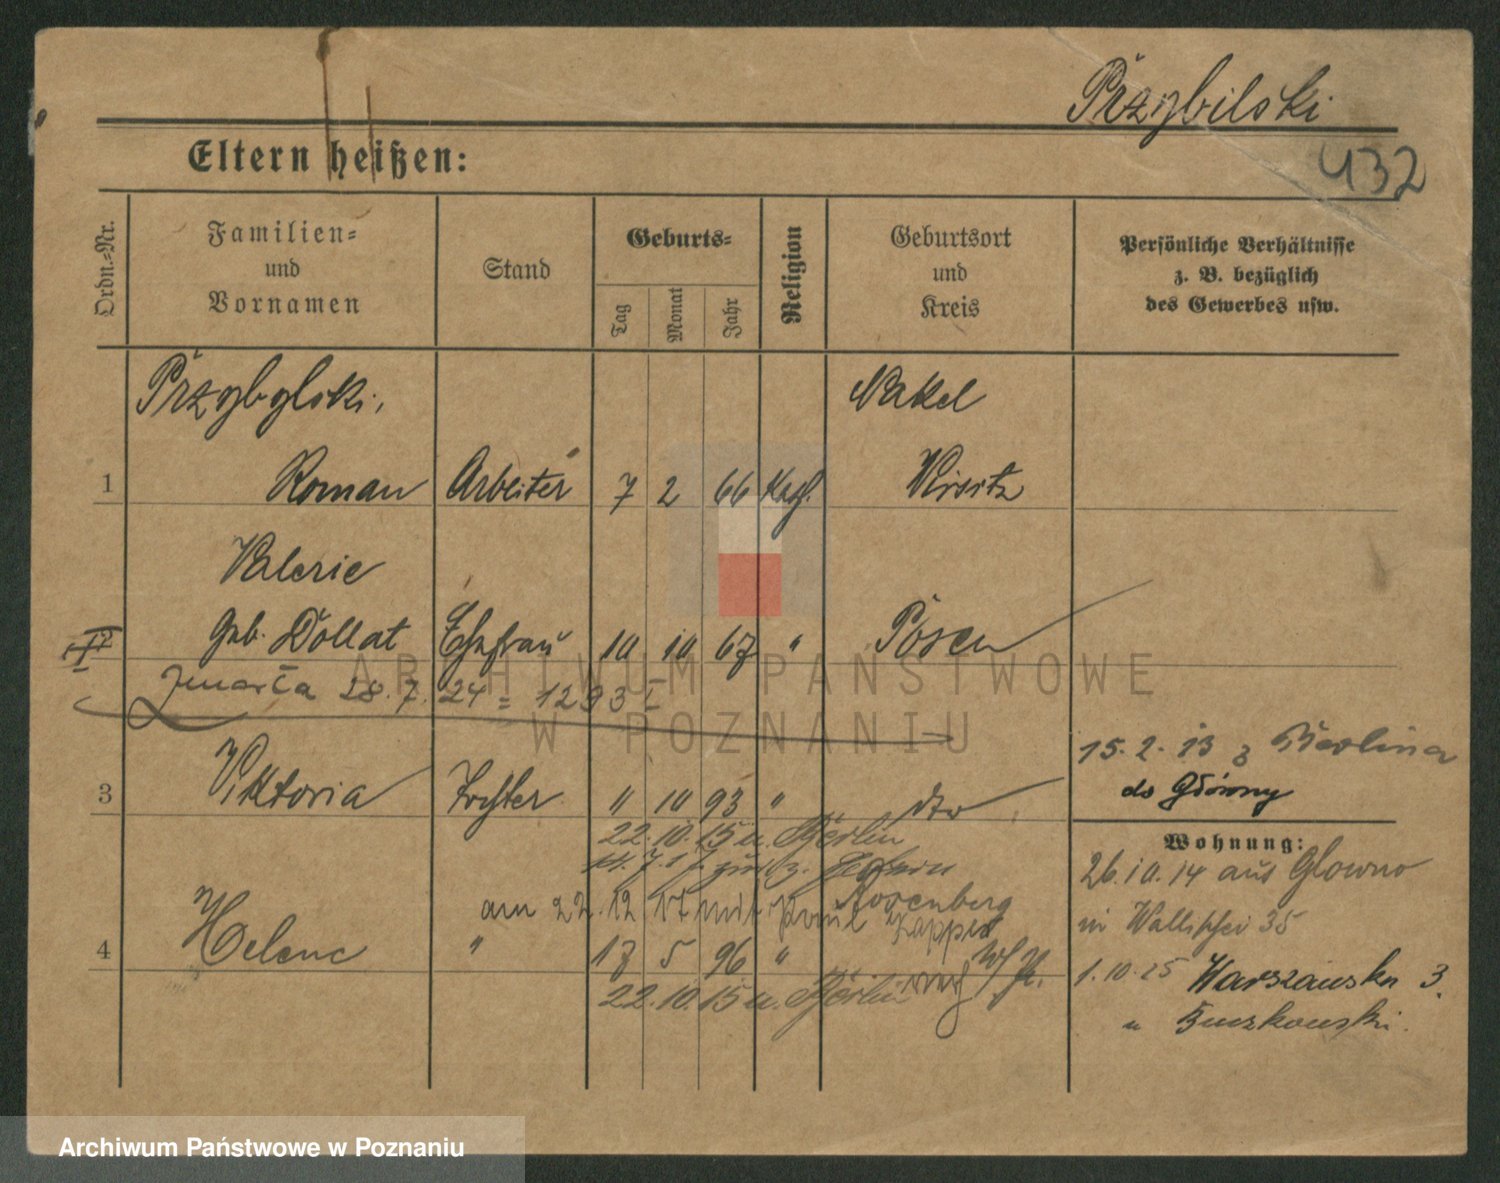 Przybilski
Eltern heißen:
432
Ordn.-Nr.
Familien-
und
Vornamen
Stand
Geburts-
Tag
Monat
Jahr
Religion
Geburtsort
und
Kreis
Persönliche Verhältnisse
z. B. bezüglich
des Gewerbes usw.
Przybylski,
Nakel
1 Roman Arbeiter 7 2 66 Kath. Wirsitz
Valerie
geb. Dollat Ehefrau 10 10 67 " Posen
Zmarła 28.7.24 = 1293 I
15.2.23 z Berlina
do Główny
3 Viktoria Tochter " 10 93 " dto
22.10.15 u. Berlin
14.7.17 zur. z. Eltern
am 22.12.17 mit Paul
Rosenberg
4 Helene " 17 5 96 "
22.10.15 u. Berlin
Wohnung:
26.10.14 aus Glowno
in Wallischei 35
1.10.25 Warszawska 3
u
ARCHIWUM PAŃSTWOWE
W POZNANIU
Archiwum Państwowe w Poznaniu